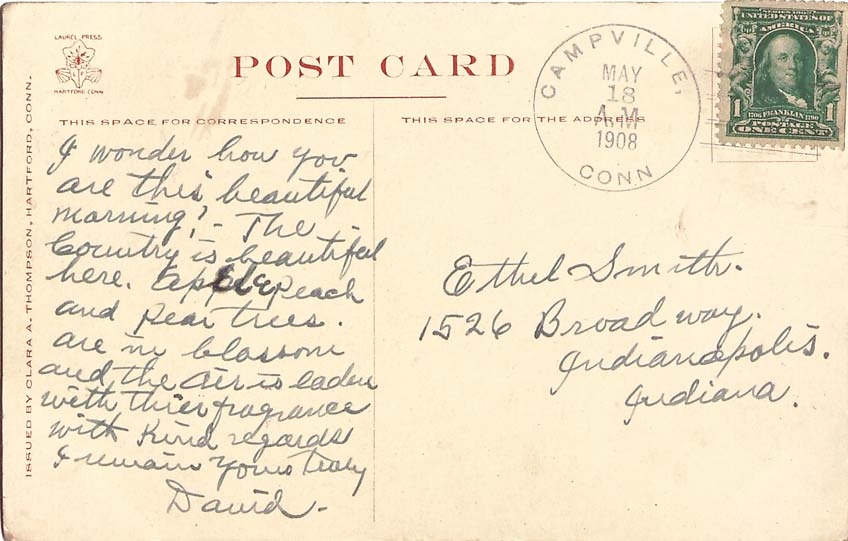 LAUREL PRESS
HARTFORD CONN
POST CARD
CAMPVILLE,
MAY
18
A.M
1908
CONN
SERIES 1902
UNITED STATES OF
AMERICA
1706 FRANKLIN 1790
POSTAGE
1 ONE CENT 1
THIS SPACE FOR CORRESPONDENCE
THIS SPACE FOR THE ADDRESS
ISSUED BY CLARA A. THOMPSON, HARTFORD, CONN.
I wonder how you
are this beautiful
morning? - The
Country is beautiful
here. apple peach
and pear trees.
are in blossom
and the air is laden
with thier fragrance
with Kind regards
I remain yours truly
David -
Ethel Smith.
1526 Broadway.
Indianapolis.
Indiana.